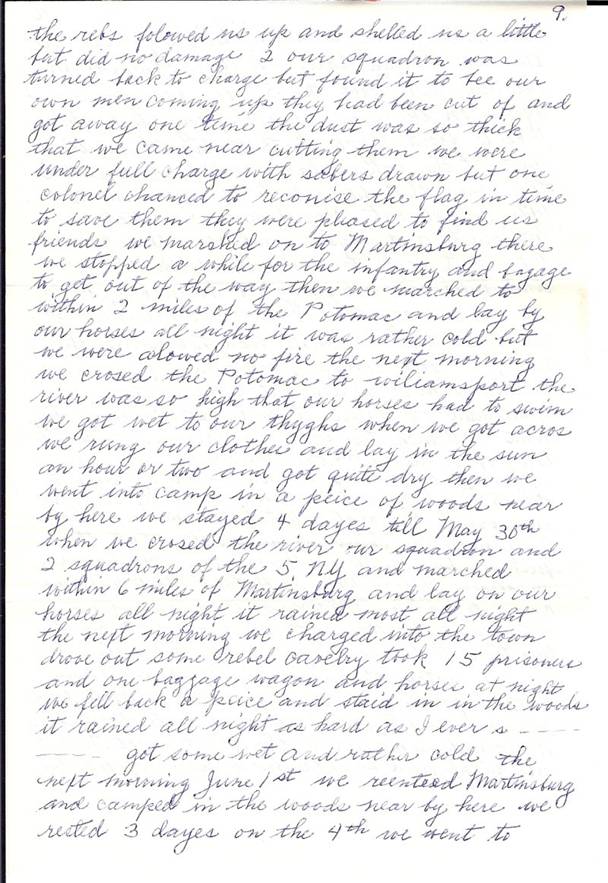 9.
the rebs folowed us up and shelled us a little
but did no damage 2 our squadron was
turned back to charge but found it to bee our
own men coming up they had been cut of and
got away one time the dust was so thick
that we came near cutting them we were
under full charge with sabers drawn but one
colonel chanced to reconise the flag in time
to save them they were pleased to find us
friends we marshed on to Martinsburg there
we stopped a while for the infantry and bagage
to get out of the way then we marched to
within 2 miles of the Potomac and lay by
our horses all night it was rather cold but
we were alowed no fire the next morning
we crosed the Potomac to wiliamsport the
river was so high that our horses had to swim
we got wet to our thyghs when we got acros
we rung our clothes and lay in the sun
an hour or two and got quite dry then we
went into camp in a peice of woods near
by here we stayed 4 dayes till May 30th
when we crosed the river our squadron and
2 squadrons of the 5 NY and marched
within 6 miles of Martinsburg and lay on our
horses all night it rained most all night
the next morning we charged into the town
drove out some rebel cavelry took 15 prisoners
and one baggage wagon and horses at night
we fell back a peice and staid in in the woods
it rained all night as hard as I ever s ----
---- got some wet and rather cold the
next morning June 1st we reentered Martinsburg
and camped in the woods near by here we
rested 3 dayes on the 4th we went to